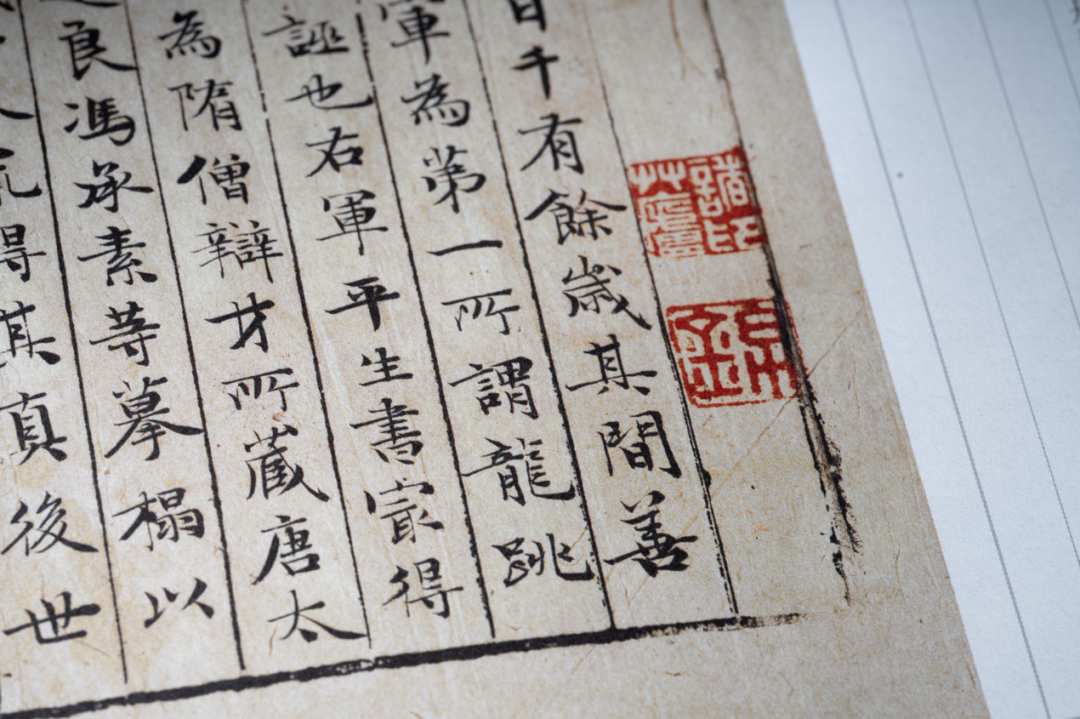 日千有餘歳其間善
軍為苐一所謂龍跳
誣也右軍平生書㝡得
為隋僧辯才所藏唐太
良馮承素等摹榻以
得其真後世